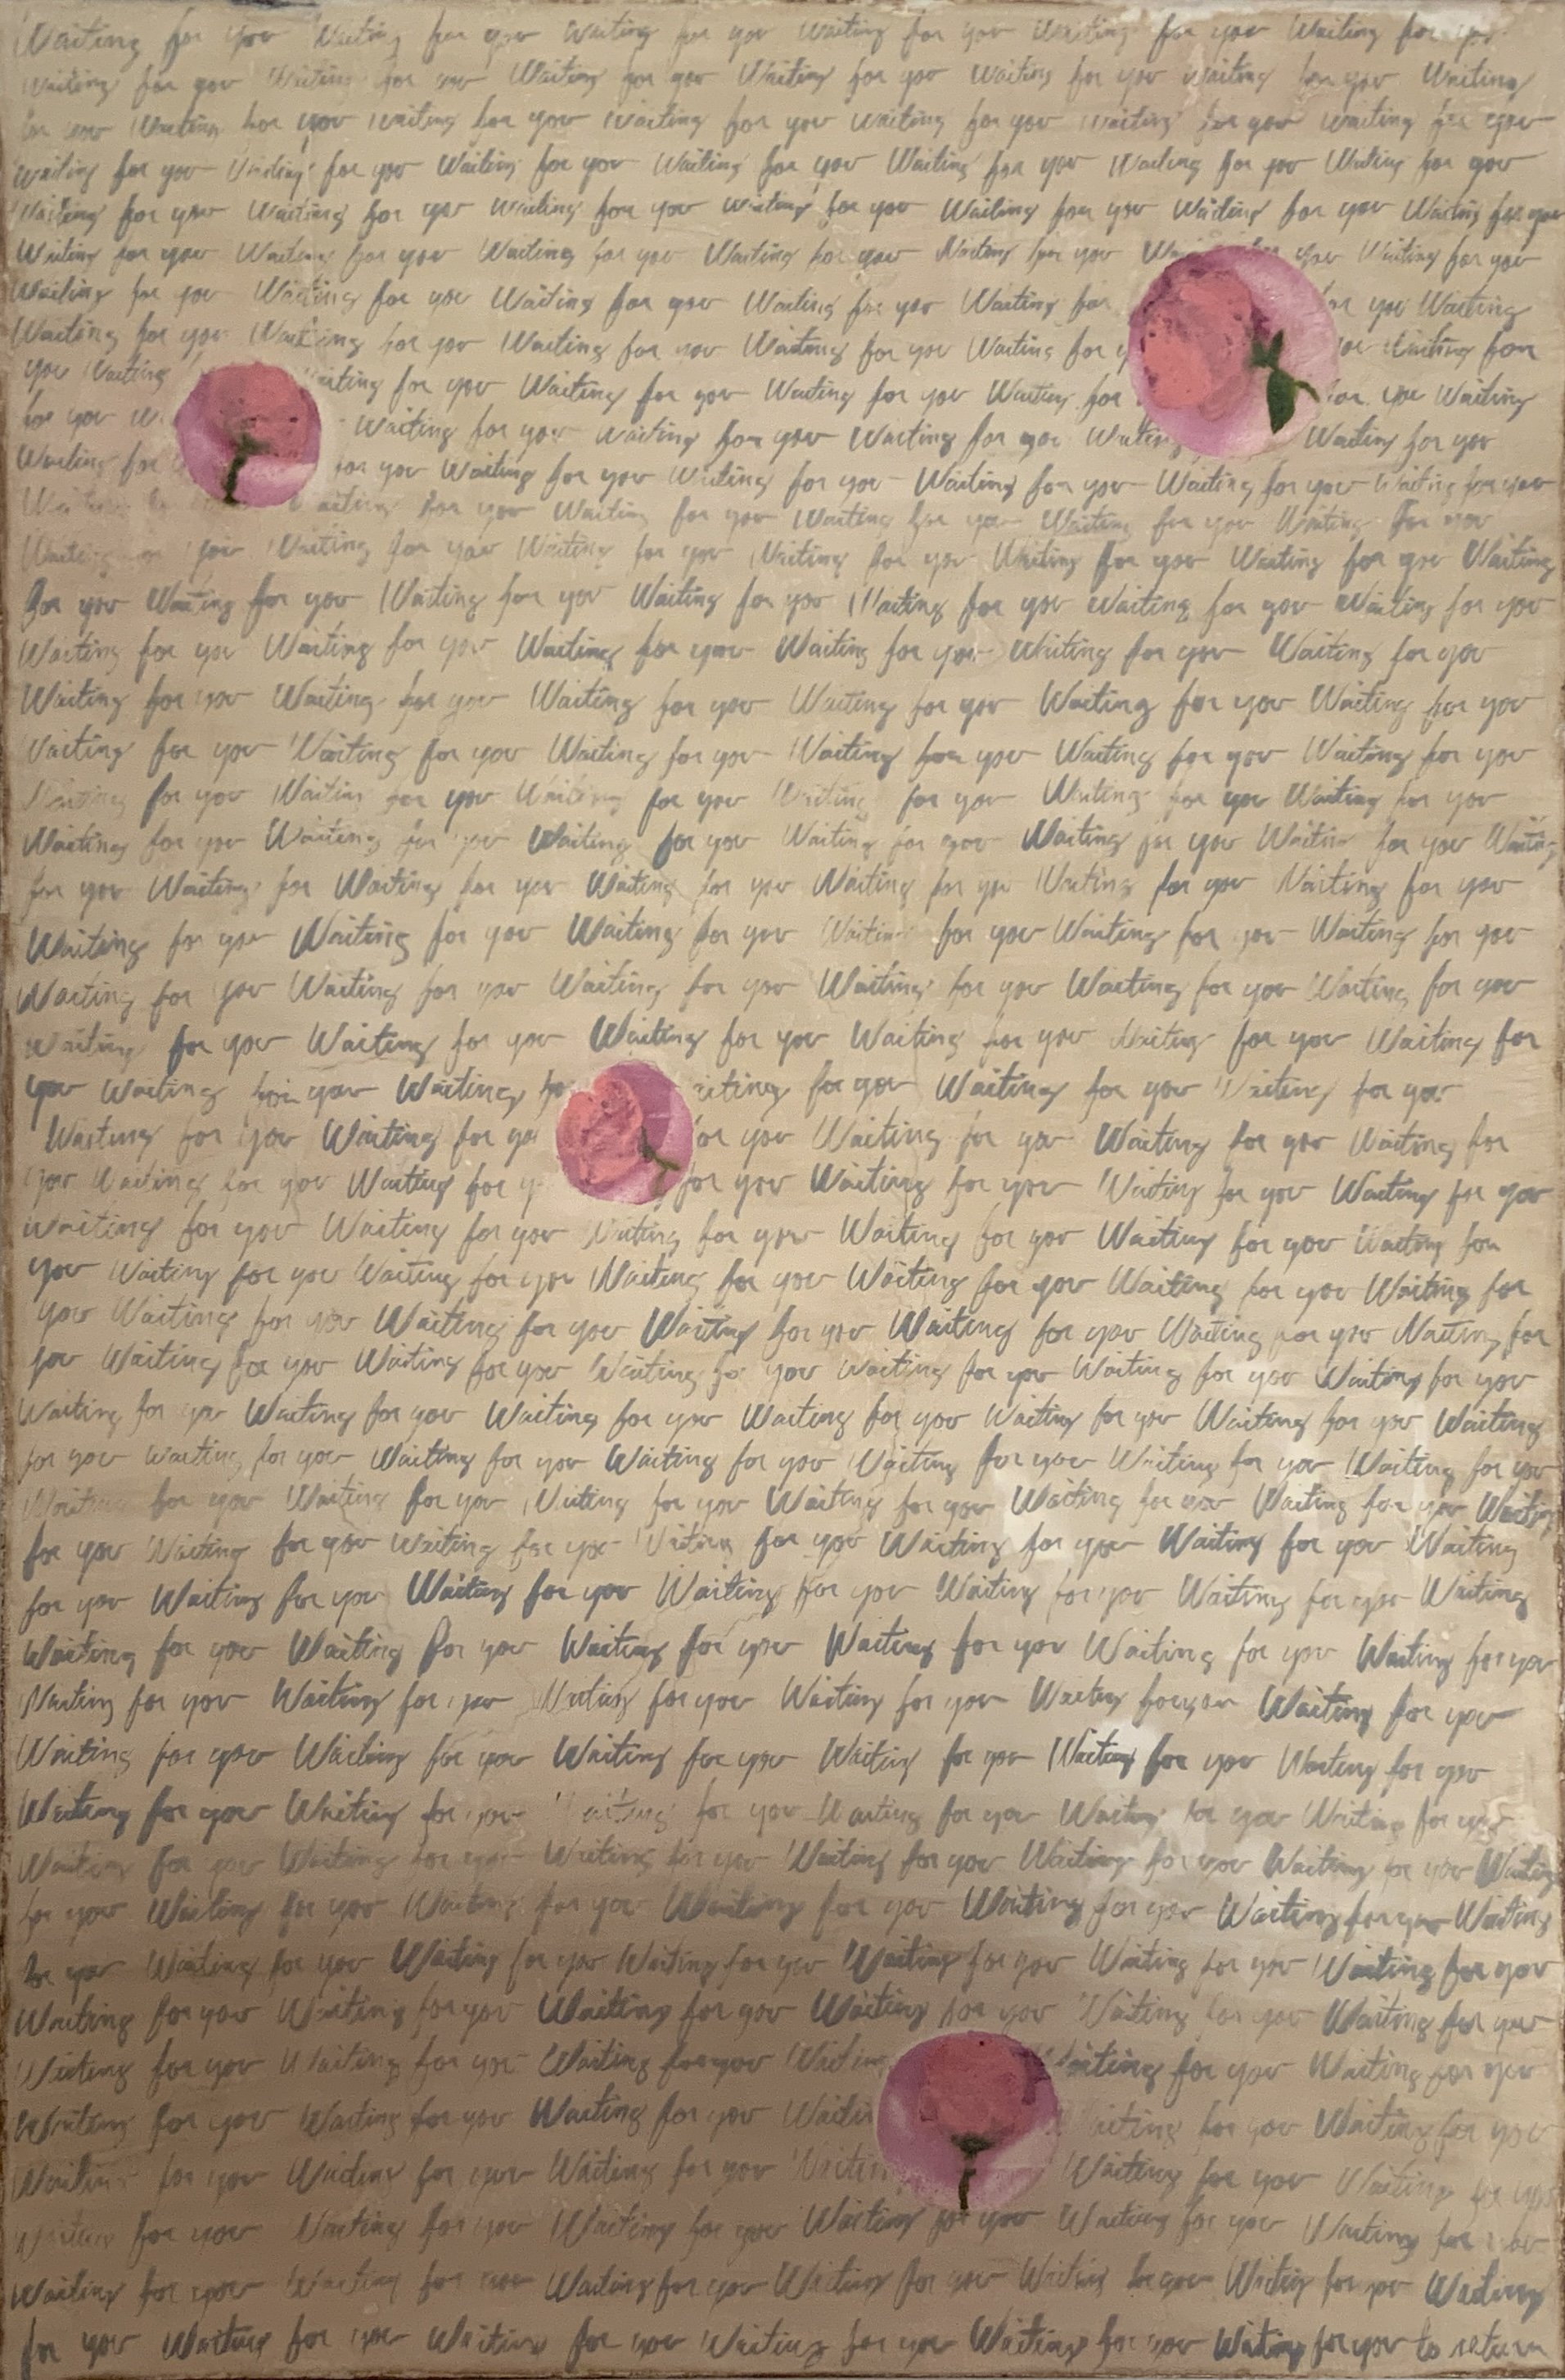 Waiting for you Waiting for you Waiting for you Waiting for you Waiting for you Waiting for you
Waiting for you Waiting for you Waiting for you Waiting for you Waiting for you Waiting for you Waiting
for you Waiting for you Waiting for you Waiting for you Waiting for you Waiting for you Waiting for you
Waiting for you Waiting for you Waiting for you Waiting for you Waiting for you Waiting for you Waiting for you
Waiting for you Waiting for you Waiting for you Waiting for you Waiting for you Waiting for you Waiting for you
Waiting for you Waiting for you Waiting for you Waiting for you Waiting for you you Waiting for you
Waiting for you Waiting for you Waiting for you Waiting for you Waiting for for you Waiting
Waiting for you Waiting for you Waiting for you Waiting for you Waiting for you Waiting for
you Waiting Waiting for you Waiting for you Waiting for you Waiting for for you Waiting
for you Waiting for you Waiting for you Waiting for you Waiting Waiting for you
Waiting for for you Waiting for you Waiting for you Waiting for you Waiting for you Waiting for you
Waiting Waiting for you Waiting for you Waiting for you Waiting for you Waiting for you
Waiting for you Waiting for you Waiting for you Waiting for you Waiting for you Waiting for you Waiting
for you Waiting for you Waiting for you Waiting for you Waiting for you Waiting for you Waiting for you
Waiting for you Waiting for you Waiting for you Waiting for you Waiting for you Waiting for you
Waiting for you Waiting for you Waiting for you Waiting for you Waiting for you Waiting for you
Waiting for you Waiting for you Waiting for you Waiting for you Waiting for you Waiting for you
Waiting for you Waiting for you Waiting for you Waiting for you Waiting for you Waiting for you
Waiting for you Waiting for you Waiting for you Waiting for you Waiting for you Waiting for you Waiting
for you Waiting for Waiting for you Waiting for you Waiting for you Waiting for you Waiting for you
Waiting for you Waiting for you Waiting for you Waiting for you Waiting for you Waiting for you
Waiting for you Waiting for you Waiting for you Waiting for you Waiting for you Waiting for you
Waiting for you Waiting for you Waiting for you Waiting for you Waiting for you Waiting for
you Waiting for you Waiting for Waiting for you Waiting for you Waiting for you
Waiting for you Waiting for you for you Waiting for you Waiting for you Waiting for
you Waiting for you Waiting for for you Waiting for you Waiting for you Waiting for you
Waiting for you Waiting for you Waiting for you Waiting for you Waiting for you Waiting for
you Waiting for you Waiting for you Waiting for you Waiting for you Waiting for you Waiting for
you Waiting for you Waiting for you Waiting for you Waiting for you Waiting for you Waiting for
you Waiting for you Waiting for you Waiting for you Waiting for you Waiting for you Waiting for you
Waiting for you Waiting for you Waiting for you Waiting for you Waiting for you Waiting for you Waiting
for you Waiting for you Waiting for you Waiting for you Waiting for you Waiting for you Waiting for you
Waiting for you Waiting for you Waiting for you Waiting for you Waiting for you Waiting for you Waiting
for you Waiting for you Waiting for you Waiting for you Waiting for you Waiting for you Waiting
for you Waiting for you Waiting for you Waiting for you Waiting for you Waiting for you Waiting
Waiting for you Waiting for you Waiting for you Waiting for you Waiting for you Waiting for you
Waiting for you Waiting for you Waiting for you Waiting for you Waiting for you Waiting for you
Waiting for you Waiting for you Waiting for you Waiting for you Waiting for you Waiting for you
Waiting for you Waiting for you Waiting for you Waiting for you Waiting for you Waiting for you
Waiting for you Waiting for you Waiting for you Waiting for you Waiting for you Waiting for you Waiting
for you Waiting for you Waiting for you Waiting for you Waiting for you Waiting for you Waiting
for you Waiting for you Waiting for you Waiting for you Waiting for you Waiting for you Waiting for you
Waiting for you Waiting for you Waiting for you Waiting for you Waiting for you Waiting for you
Waiting for you Waiting for you Waiting for you Waiting Waiting for you Waiting for you
Waiting for you Waiting for you Waiting for you Waiting Waiting for you Waiting for you
Waiting for you Waiting for you Waiting for you Waiting Waiting for you Waiting for you
Waiting for you Waiting for you Waiting for you Waiting for you Waiting for you Waiting for you
Waiting for you Waiting for you Waiting for you Waiting for you Waiting for you Waiting for you Waiting
for you Waiting for you Waiting for you Waiting for you Waiting for you Waiting for you to return